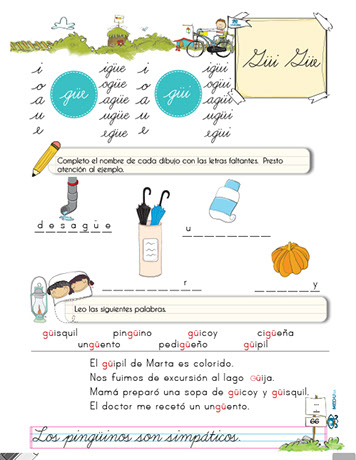 Güi Güe
i igüe i igüi
o ogüe o ogüi
a agüe a agüi
u ugüe u ugüi
e egüe e egüi
güe
güi
Completo el nombre de cada dibujo con las letras faltantes. Presto
atención al ejemplo.
d e s a g ü e
u
r
y
Leo las siguientes palabras.
güisquil pingüino güicoy cigüeña
ungüento pedigüeño güipil
El güipil de Marta es colorido.
Nos fuimos de excursión al lago Güija.
Mamá preparó una sopa de güicoy y güisquil.
El doctor me recetó un ungüento.
66
Los pingüinos son simpáticos.